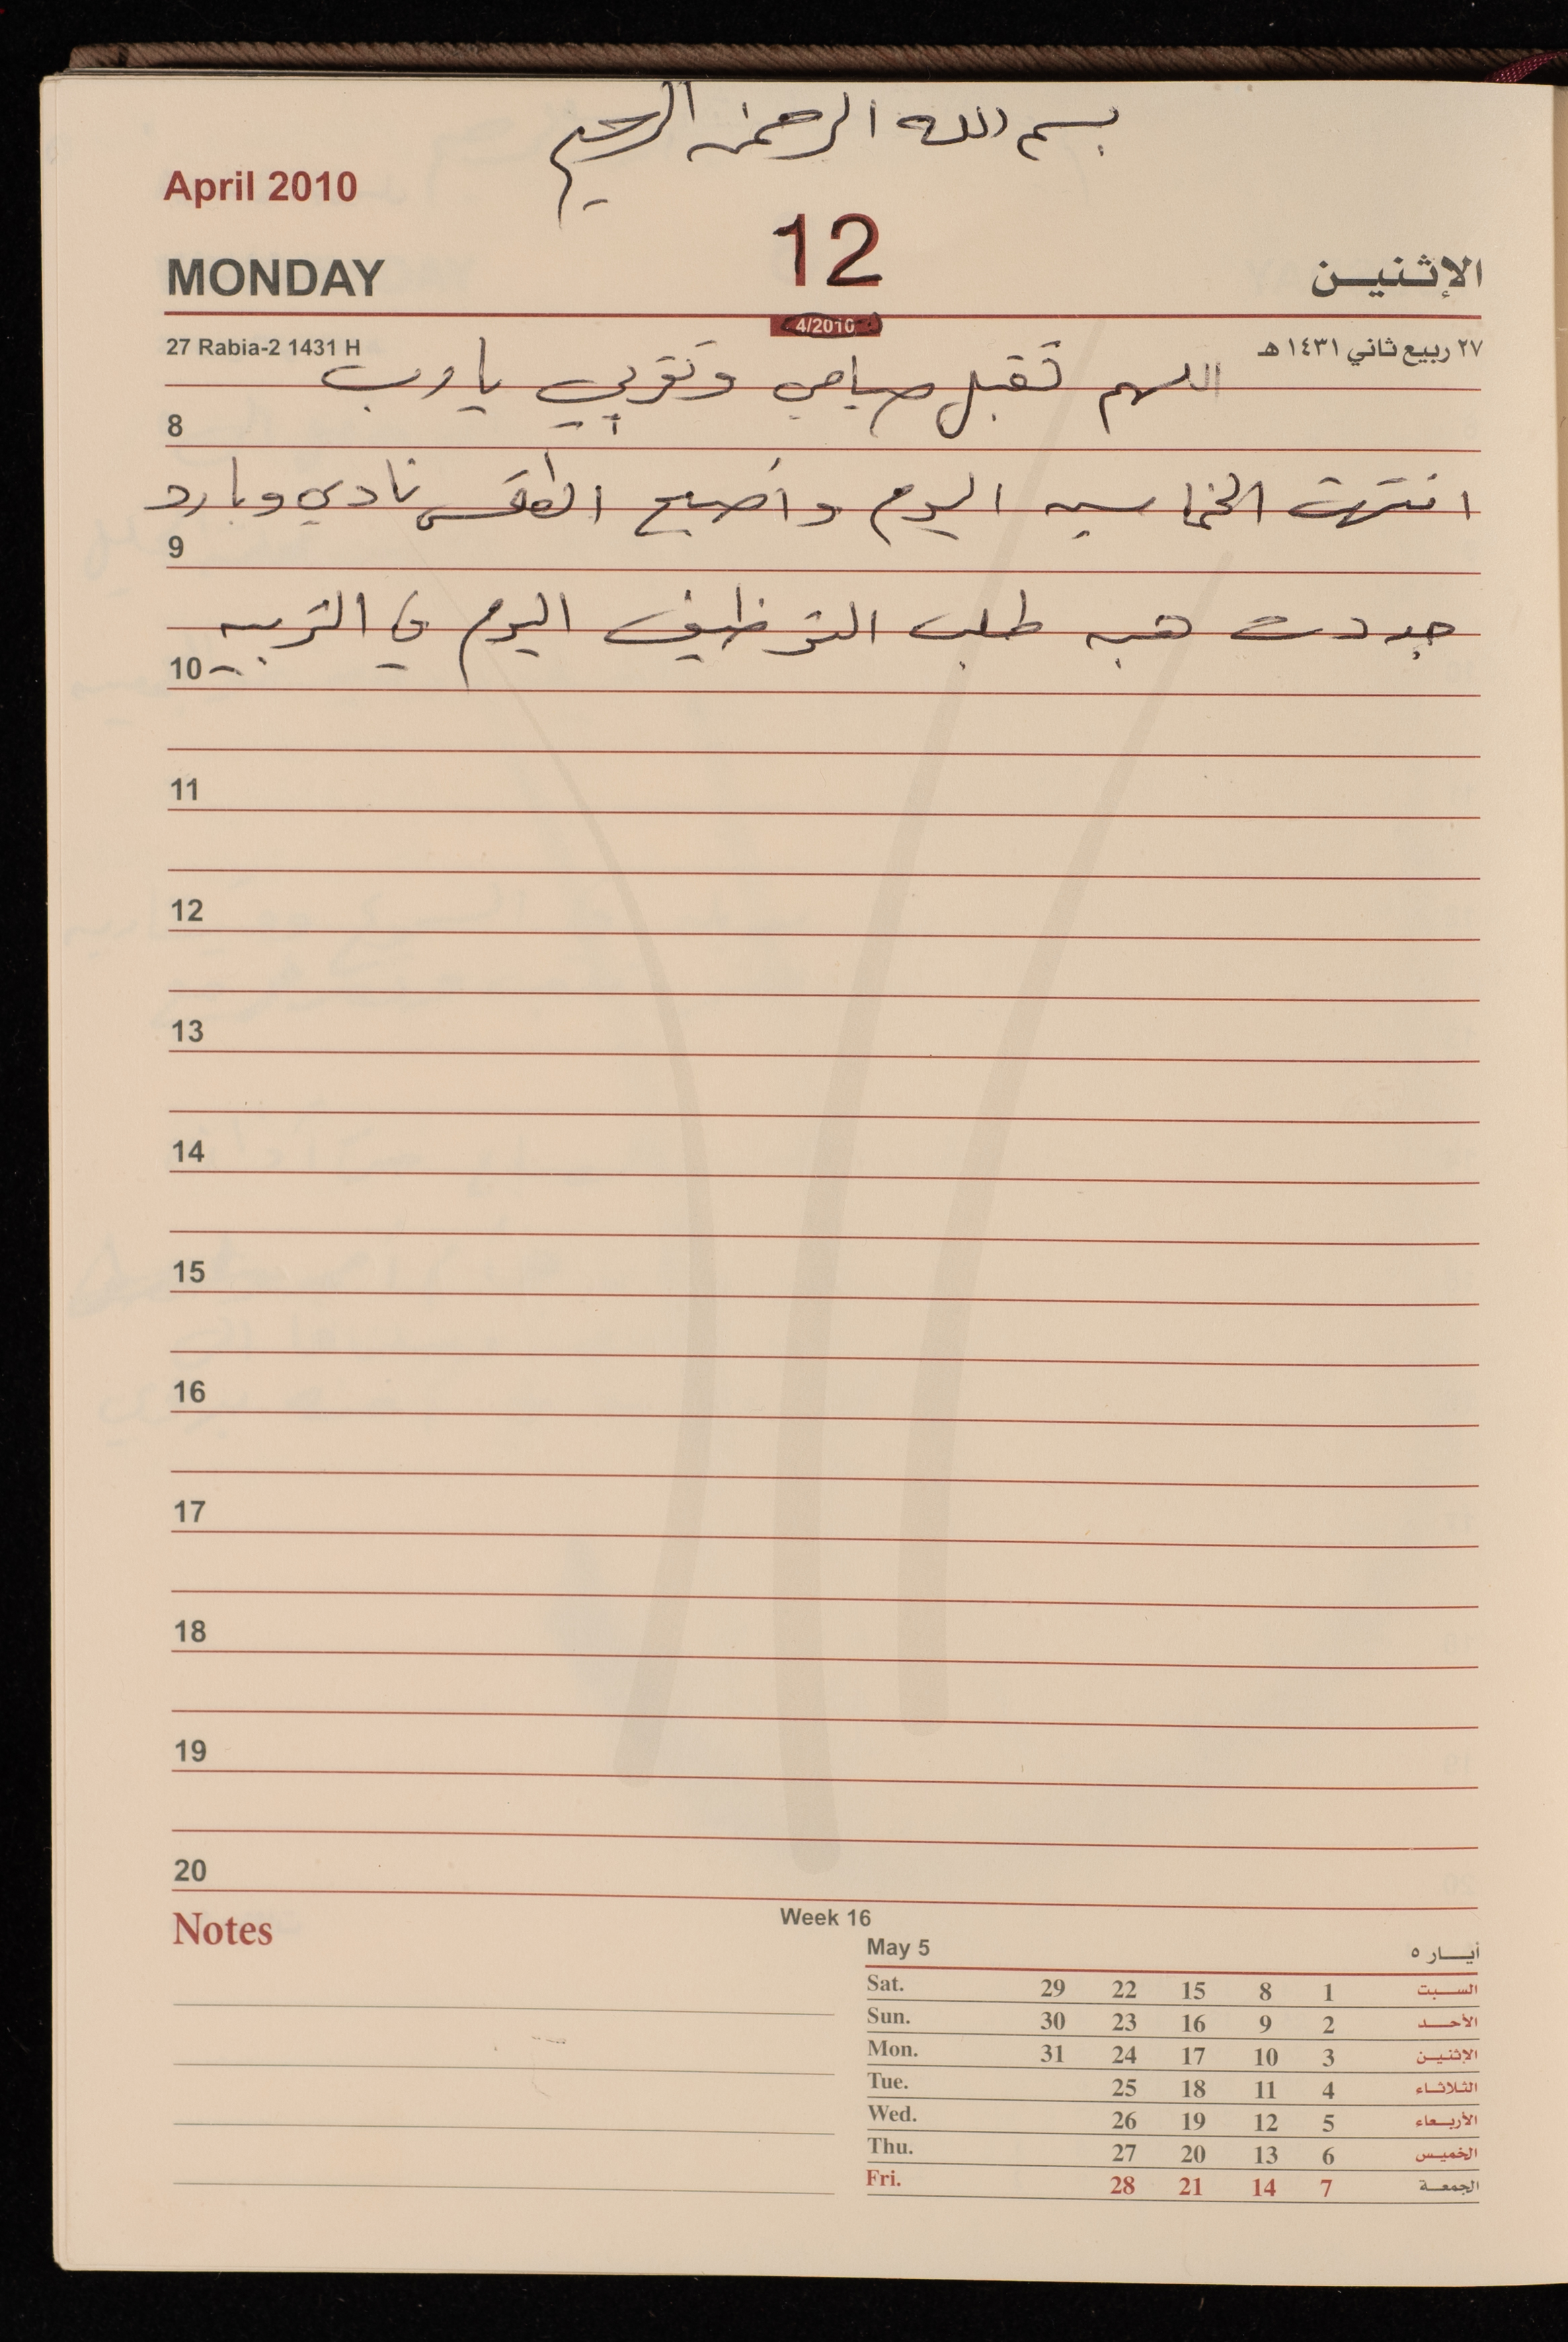 بسم الله الرحمن الرحيم
April 2010
12
MONDAY
الإثنين
4/2010
27 Rabia-2 1431 H
٢٧ ربيع ثاني ١٤٣١ هـ
اللهم تقبل صيامي وتقربي يا رب
8
انتهت الخماسيه اليوم وأصبح الطقس نادي وبارد
9
جددت هبه طلب التوظيف اليوم في التربيه
10
11
12
13
14
15
16
17
18
19
20
Notes
Week 16
May 5 أيـــار ٥
Sat. 29 22 15 8 1 السبت
Sun. 30 23 16 9 2 الأحد
Mon. 31 24 17 10 3 الإثنين
Tue. 25 18 11 4 الثلاثاء
Wed. 26 19 12 5 الأربعاء
Thu. 27 20 13 6 الخميس
Fri. 28 21 14 7 الجمعة